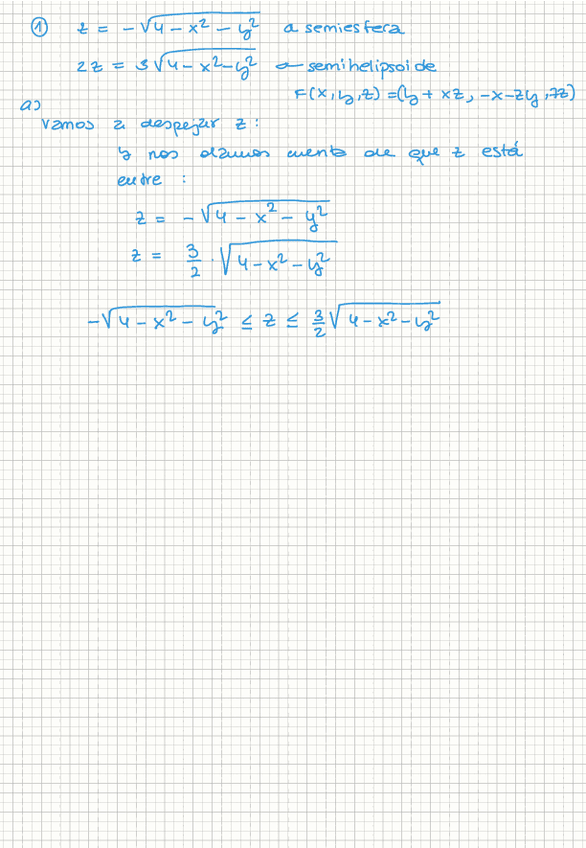 ① z = -√4-x²-y² a semiesfera
2z = 3√4-x²-y² a semihelipsoide
F(x,y,z) = (y + xz, -x-zy, 7z)
a)
Vamos a despejar z:
y nos damos cuenta de que z está
entre :
z = -√4-x²-y²
z = 3/2 · √4-x²-y²
-√4-x²-y² ≤ z ≤ 3/2 √4-x²-y²